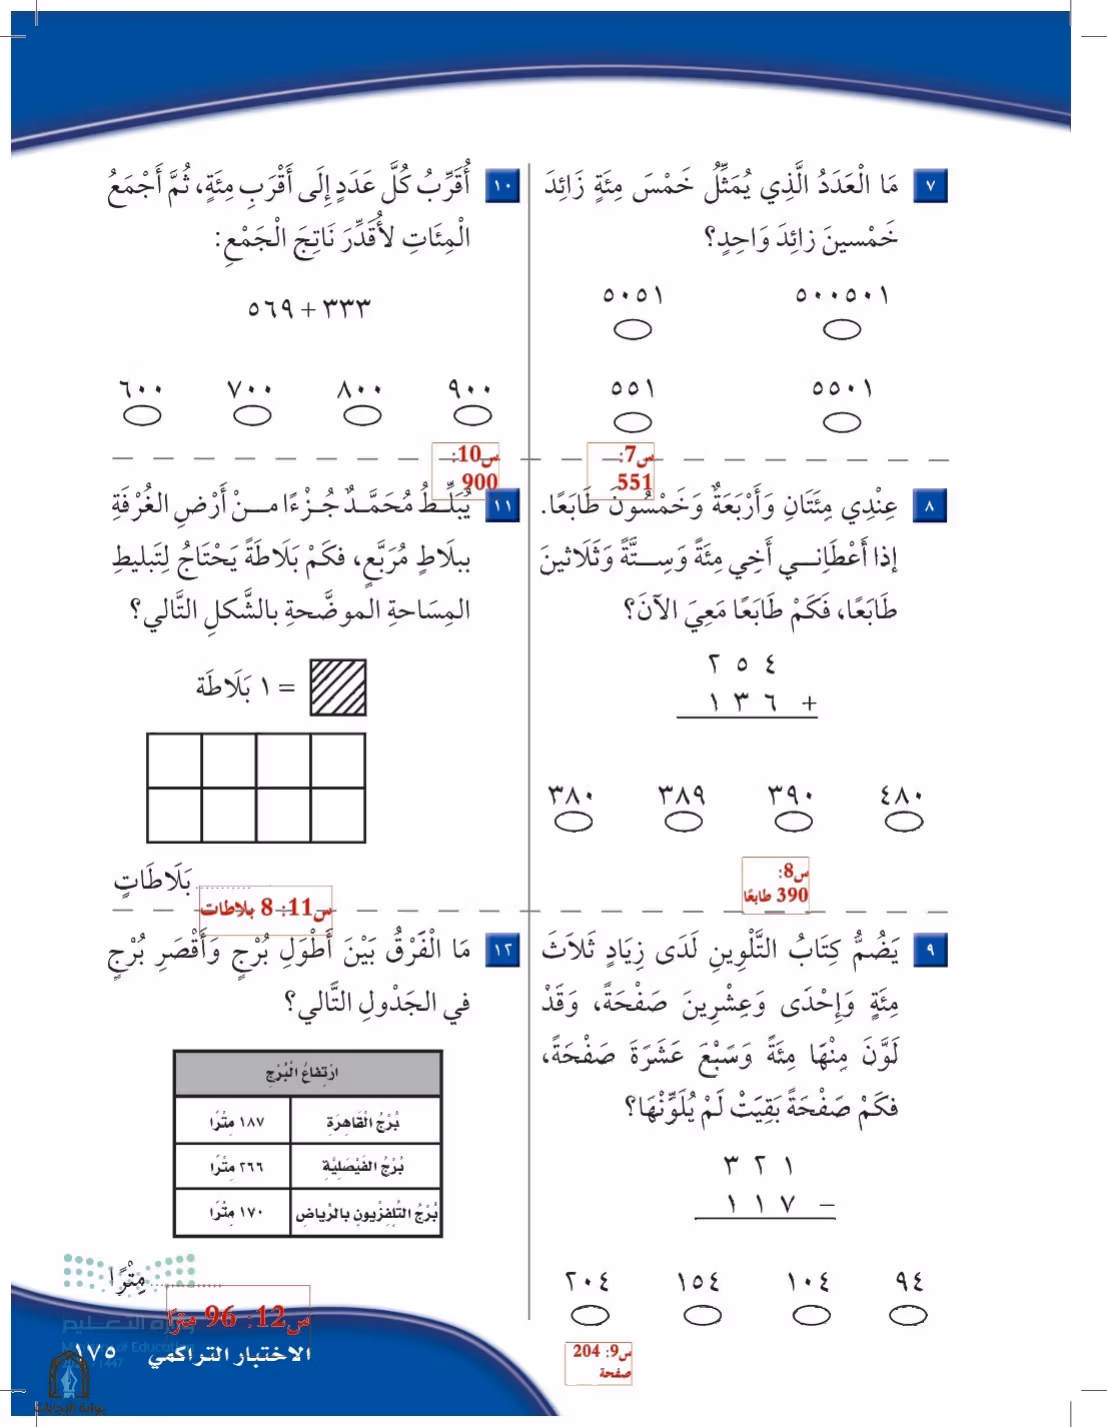 ٧ مَا الْعَدَدُ الَّذِي يُمَثِّلُ خَمْسَ مِئَةٍ زَائِدَ
خَمْسينَ زائِدَ وَاحِدٍ؟
٥٠٠٥٠١ ٥٠٥١
٥٥٠١ ٥٥١
س7:
551
٨ عِنْدِي مِئَتَانِ وَأَرْبَعَةٌ وَخَمْسُونَ طَابَعًا.
إذا أَعْطَانِـــي أَخِي مِئَةً وَسِـــتَّةً وَثَلَاثينَ
طَابَعًا، فَكَمْ طَابَعًا مَعِيَ الآنَ؟
٢ ٥ ٤
١ ٣ ٦ +
٤٨٠ ٣٩٠ ٣٨٩ ٣٨٠
س8:
390 طابعًا
٩ يَضُمُّ كِتَابُ التَّلْوِينِ لَدَى زِيَادٍ ثَلاَثَ
مِئَةٍ وَإِحْدَى وَعِشْرِينَ صَفْحَةً، وَقَدْ
لَوَّنَ مِنْهَا مِئَةً وَسَبْعَ عَشَرَةَ صَفْحَةً،
فكَمْ صَفْحَةً بَقِيَتْ لَمْ يُلَوِّنْهَا؟
٣ ٢ ١
١ ١ ٧ −
٩٤ ١٠٤ ١٥٤ ٢٠٤
س9: 204
صفحة
١٠ أُقَرِّبُ كُلَّ عَدَدٍ إِلَى أَقْرَبِ مِئَةٍ، ثُمَّ أَجْمَعُ
الْمِئَاتِ لأُقَدِّرَ نَاتِجَ الْجَمْعِ:
٣٣٣ + ٥٦٩
٩٠٠ ٨٠٠ ٧٠٠ ٦٠٠
س10:
900
١١ يُبَلِّــطُ مُحَمَّــدٌ جُــزْءًا مـــنْ أَرْضِ الغُرْفَةِ
ببلَاطٍ مُرَبَّعٍ، فكَمْ بَلَاطَةً يَحْتَاجُ لِتَبليطِ
المِسَاحةِ الموضَّحةِ بالشَّكلِ التَّالي؟
= ١ بَلَاطَة
........... بَلَاطَاتٍ
س11: 8 بلاطات
١٢ مَا الْفَرْقُ بَيْنَ أَطْوَلِ بُرْجٍ وَأَقْصَرِ بُرْجٍ
في الجَدْولِ التَّالي؟
ارْتِفاعُ الْبُرْجِ
بُرْجُ الْقَاهِرَةِ ١٨٧ مِتْرًا
بُرْجُ الفَيْصَلِيَّةِ ٢٦٦ مِتْرًا
بُرْجُ التِّلِفِزْيونِ بالرِّياضِ ١٧٠ مِتْرًا
............ مِتْرًا
س12: 96 مترًا
وزارة التعليم
Ministry of Education
1447
الاختبار التراكمي ١٧٥
بوابة الإجابات